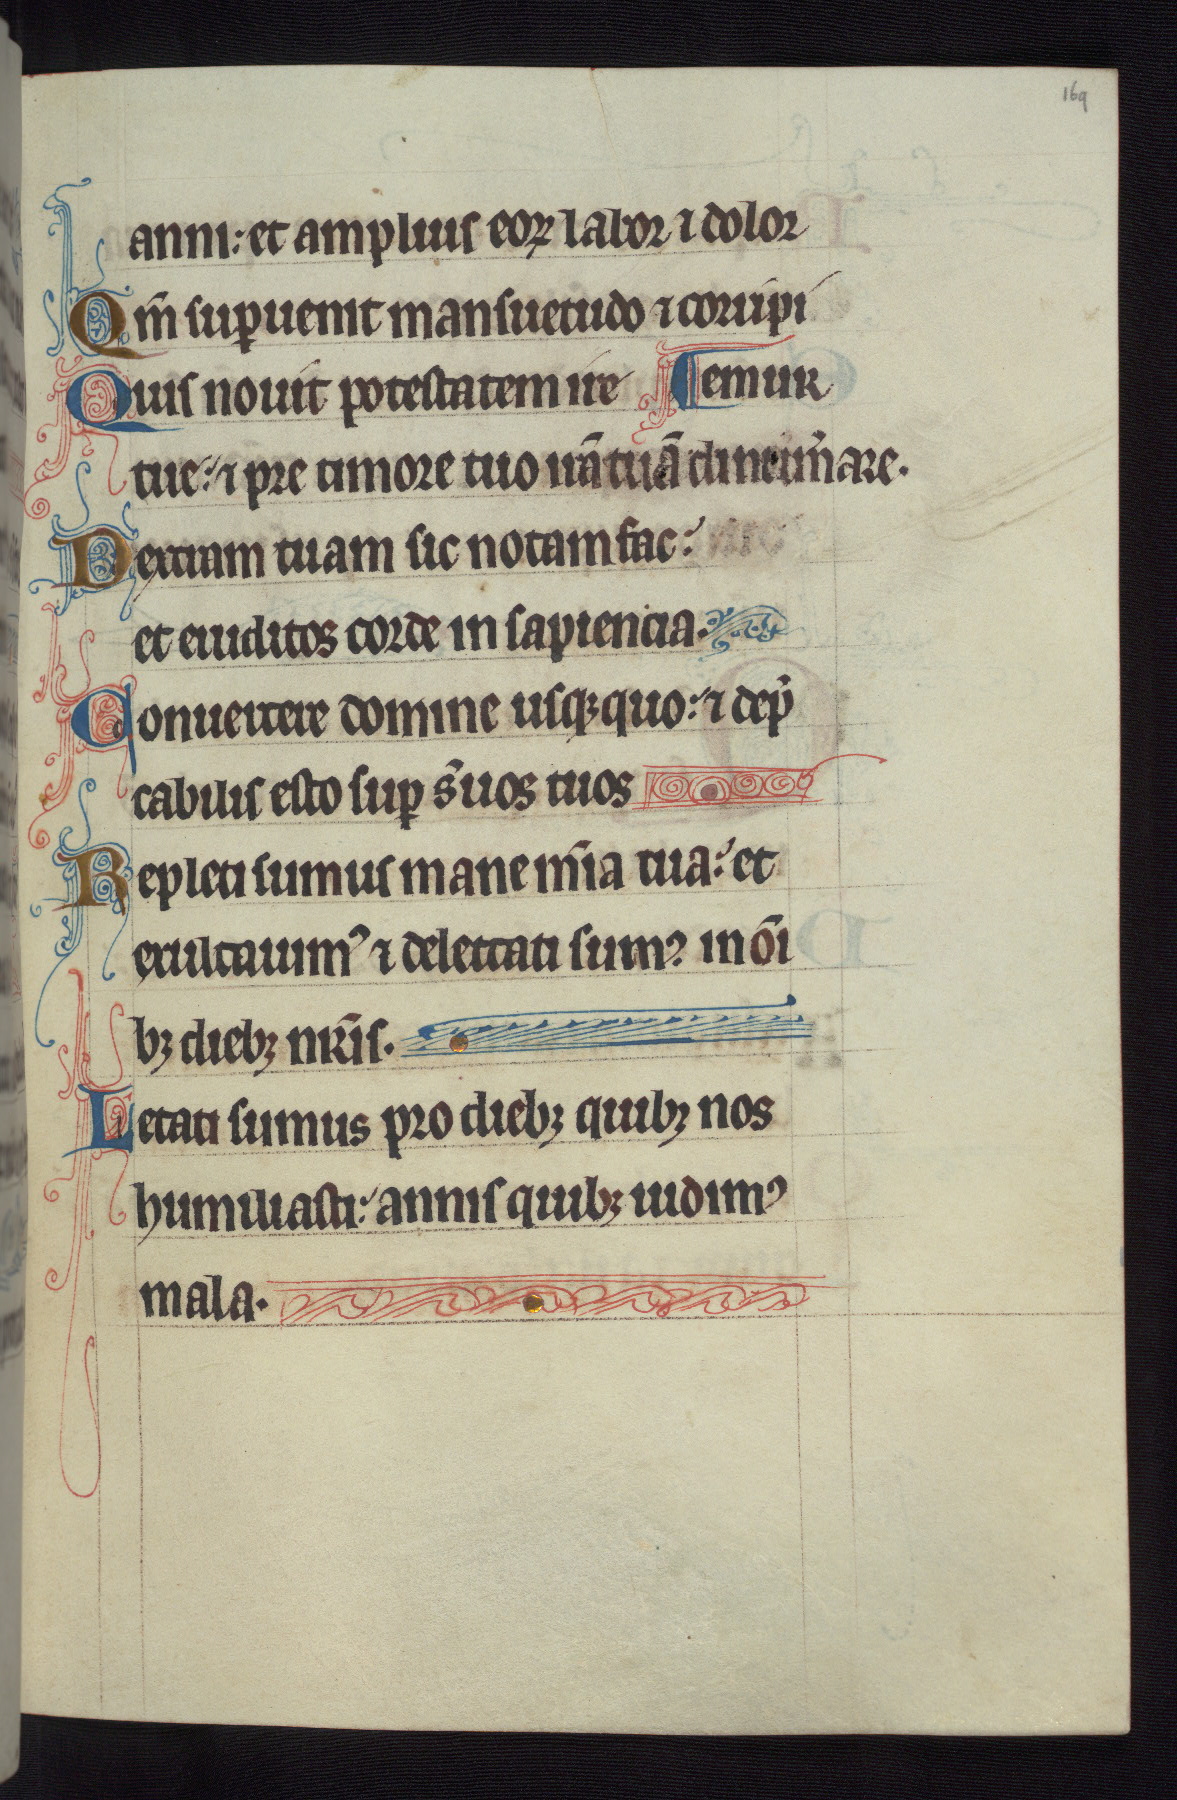 169
anni: et amplius eoꝝ labor ⁊ dolor
Qm̄ suꝑuenit mansuetudo ⁊ corripi
Quis nouit potestatem ire ¶emur
tue: ⁊ pre timore tuo irā tuā dinum̄are.
Dextram tuam sic notam fac:
et eruditos corde in sapiencia.
Conuertere domine usqꝫ quo: ⁊ dep̄
cabilis esto suꝑ s̄uos tuos
Repleti sumus mane m̄ia tua: et
exultauimꝰ ⁊ delectati sumꝰ in oī
bꝫ diebꝫ nr̄is.
Letati sumus pro diebꝫ quibꝫ nos
humiliasti: annis quibꝫ uidimꝰ
mala.